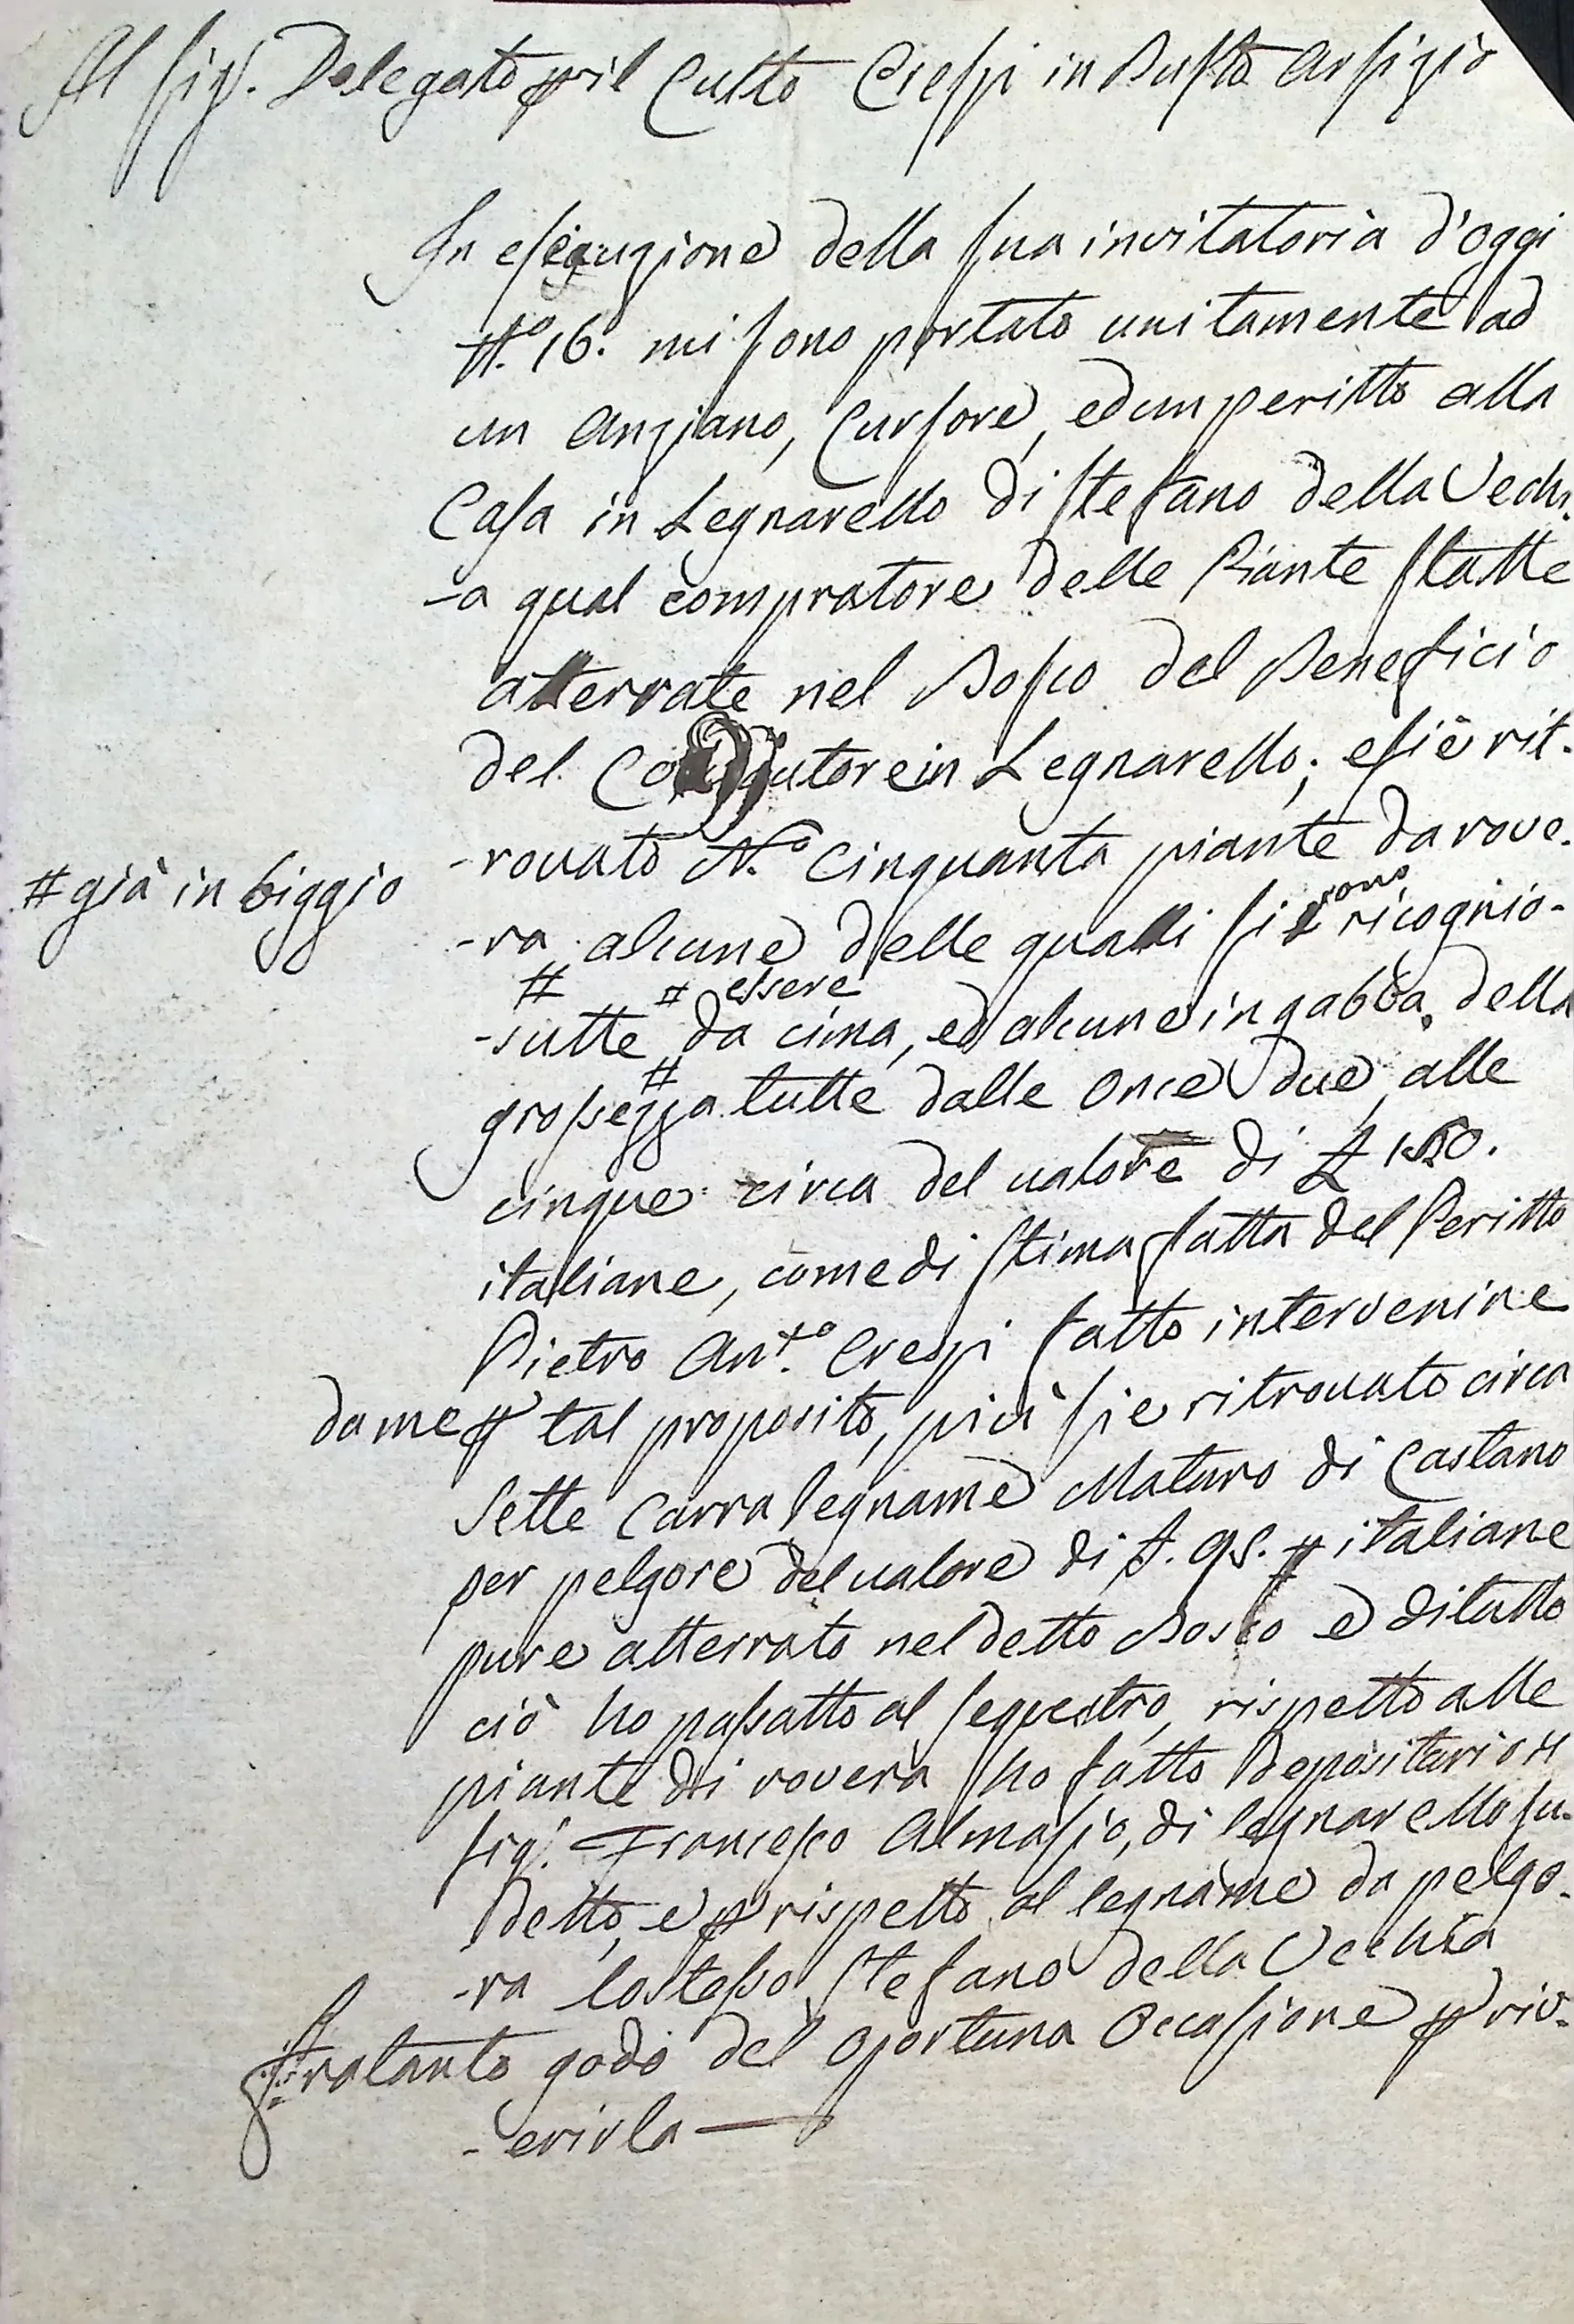 Al Sig.r Delegato per il Culto Crespi in Busto Arsizio
In esequzione della sua invitatoria d'oggi
N.o 16. mi sono portato unitamente ad
un Anziano, Cursore, ed un peritto alla
Casa in Legnarello di Stefano della Vechi-
-a qual compratore delle Piante statte
atterrate nel Bosco del Beneficio
del Coadjutore in Legnarello; e si è rit-
-rovato N.o cinquanta piante da rove-
# già in biggio
-ra alcune delle qualli si sono ricognio-
# # essere
-sutte da cima, ed alcune in gabba, della
#
grossezza tutte dalle Once due, alle
cinque circa del valore di £
italiane, come di stima fatta del Peritto
Pietro Ant.o Crespi fatto intervenire
da me per tal proposito, più si e ritrovato circa
Sette Carra legname Maturo di Castano
per pelgore del valore di £. 95. # italiane
pure atterrato nel detto Bosco e di tutto
ciò ho passatto al sequestro, rispetto alle
piante di rovera ho fatto Depositario il
Sig.r Francesco Almasio, di legnarello su-
detto, e per rispetto al legname da pelgo-
-ra lo stesso Stefano della Vecchia
Fratanto godo del oportuna Occasione per riv-
-erirla —